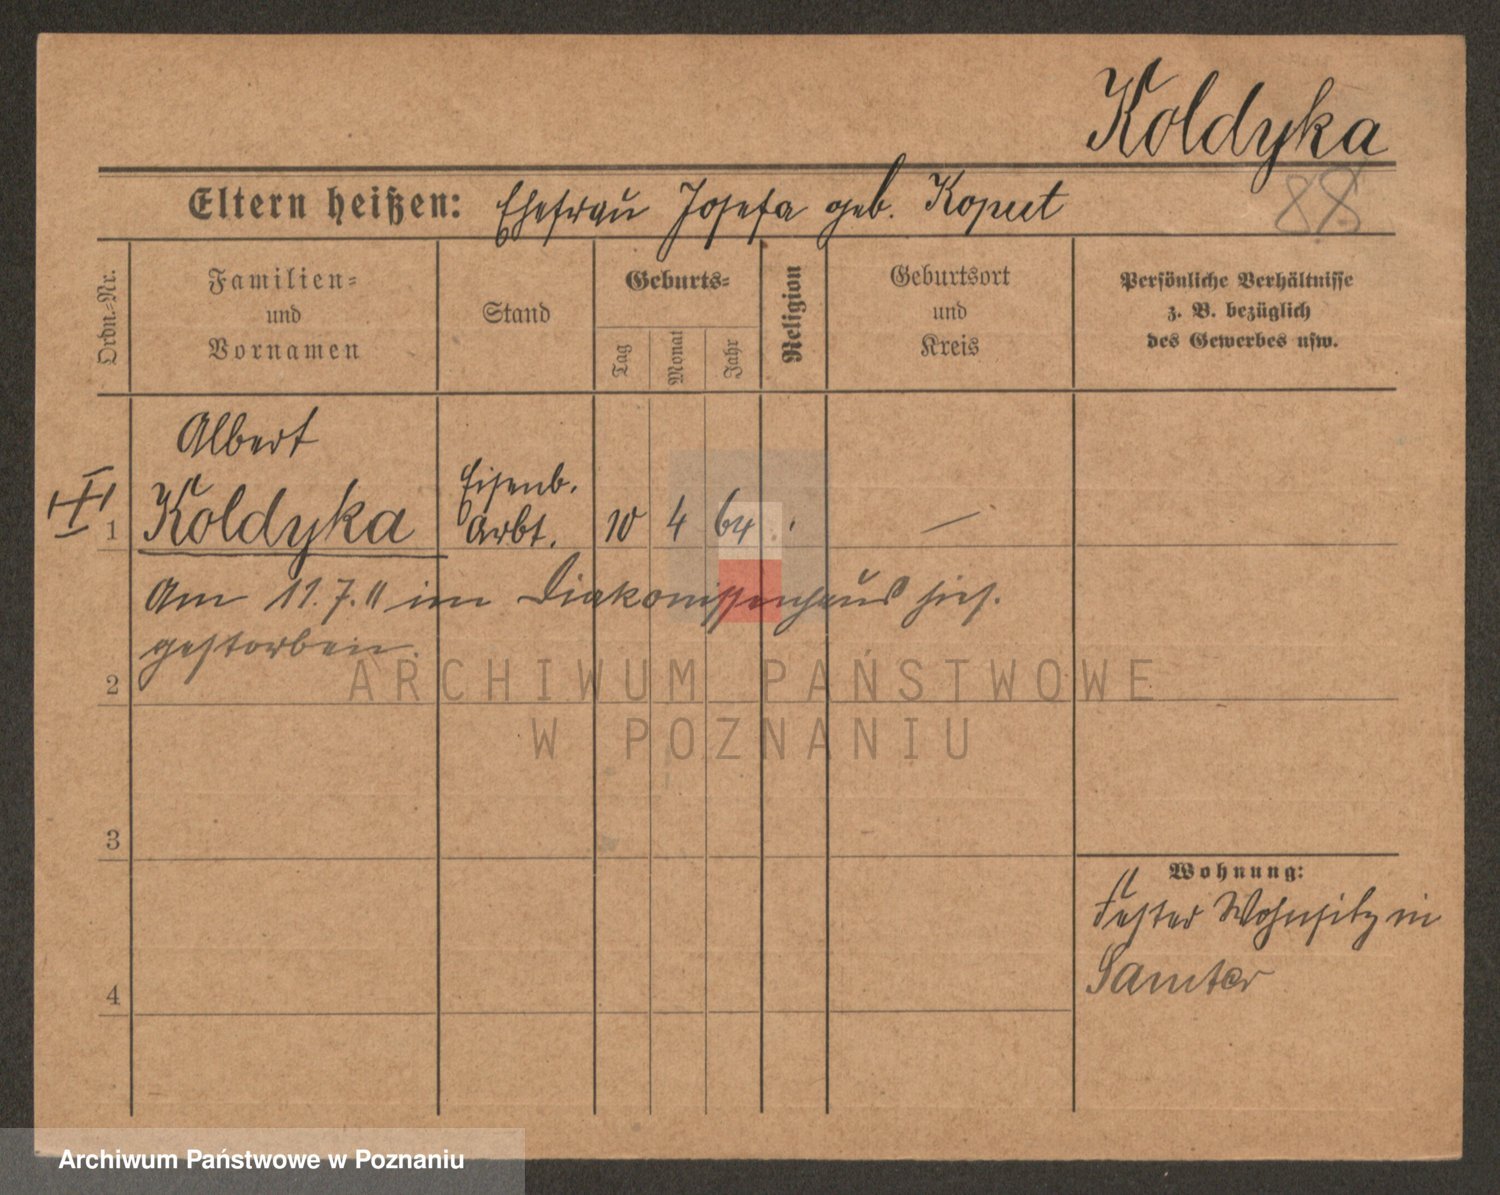 Koldyka
88
Eltern heißen: Ehefrau Josefa geb. Koput
Ordn.-Nr.
Familien-
und
Vornamen
Stand
Geburts-
Tag
Monat
Jahr
Religion
Geburtsort
und
Kreis
Persönliche Verhältnisse
z. B. bezüglich
des Gewerbes usw.
Albert
1 Koldyka
Eisenb.
Arbt.
10 4 64 . —
Am 11.7.11 im Diakonissenhaus hies.
gestorben.
2
ARCHIWUM PAŃSTWOWE
W POZNANIU
3
Wohnung:
Fester Wohnsitz in
Samter
4
Archiwum Państwowe w Poznaniu